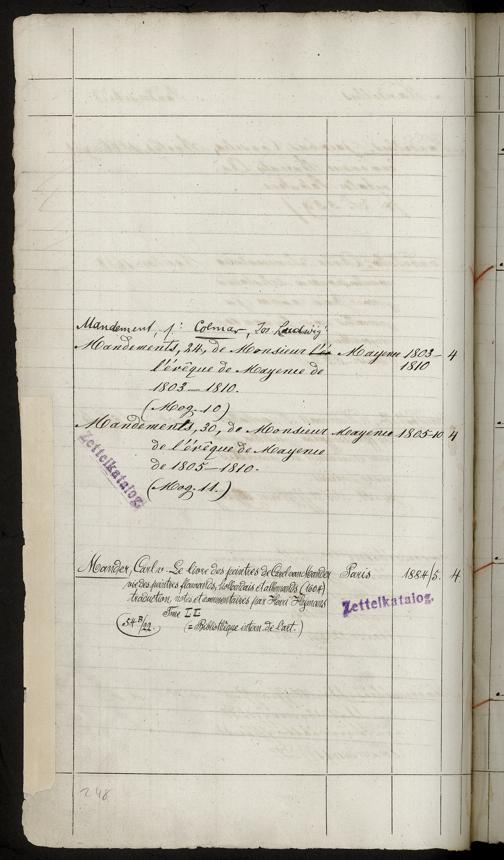 Mandement, s: Colmar, Jos Ludwig
Mandements, 24, de Monsieur l'é Mayence 1803- 4
l'évêque de Mayence de 1810
1803 - 1810.
(Mog. 10)
Mandements, 30, de Monsieur Mayence 1805-10 4
de l'évêque de Mayence
de 1805 - 1810.
(Mog. 11.)
Zettelkatalog.
Mander, Carl v. Le livre des peintres de Carel van Mander Paris 1884/5. 4.
vie des peintres flamands, hollandais et allemands (1604)
traduction, notes et commentaires par Henri Hymans
Tome I II
(= Bibliothèque intern. de l'art.)
Zettelkatalog.
248